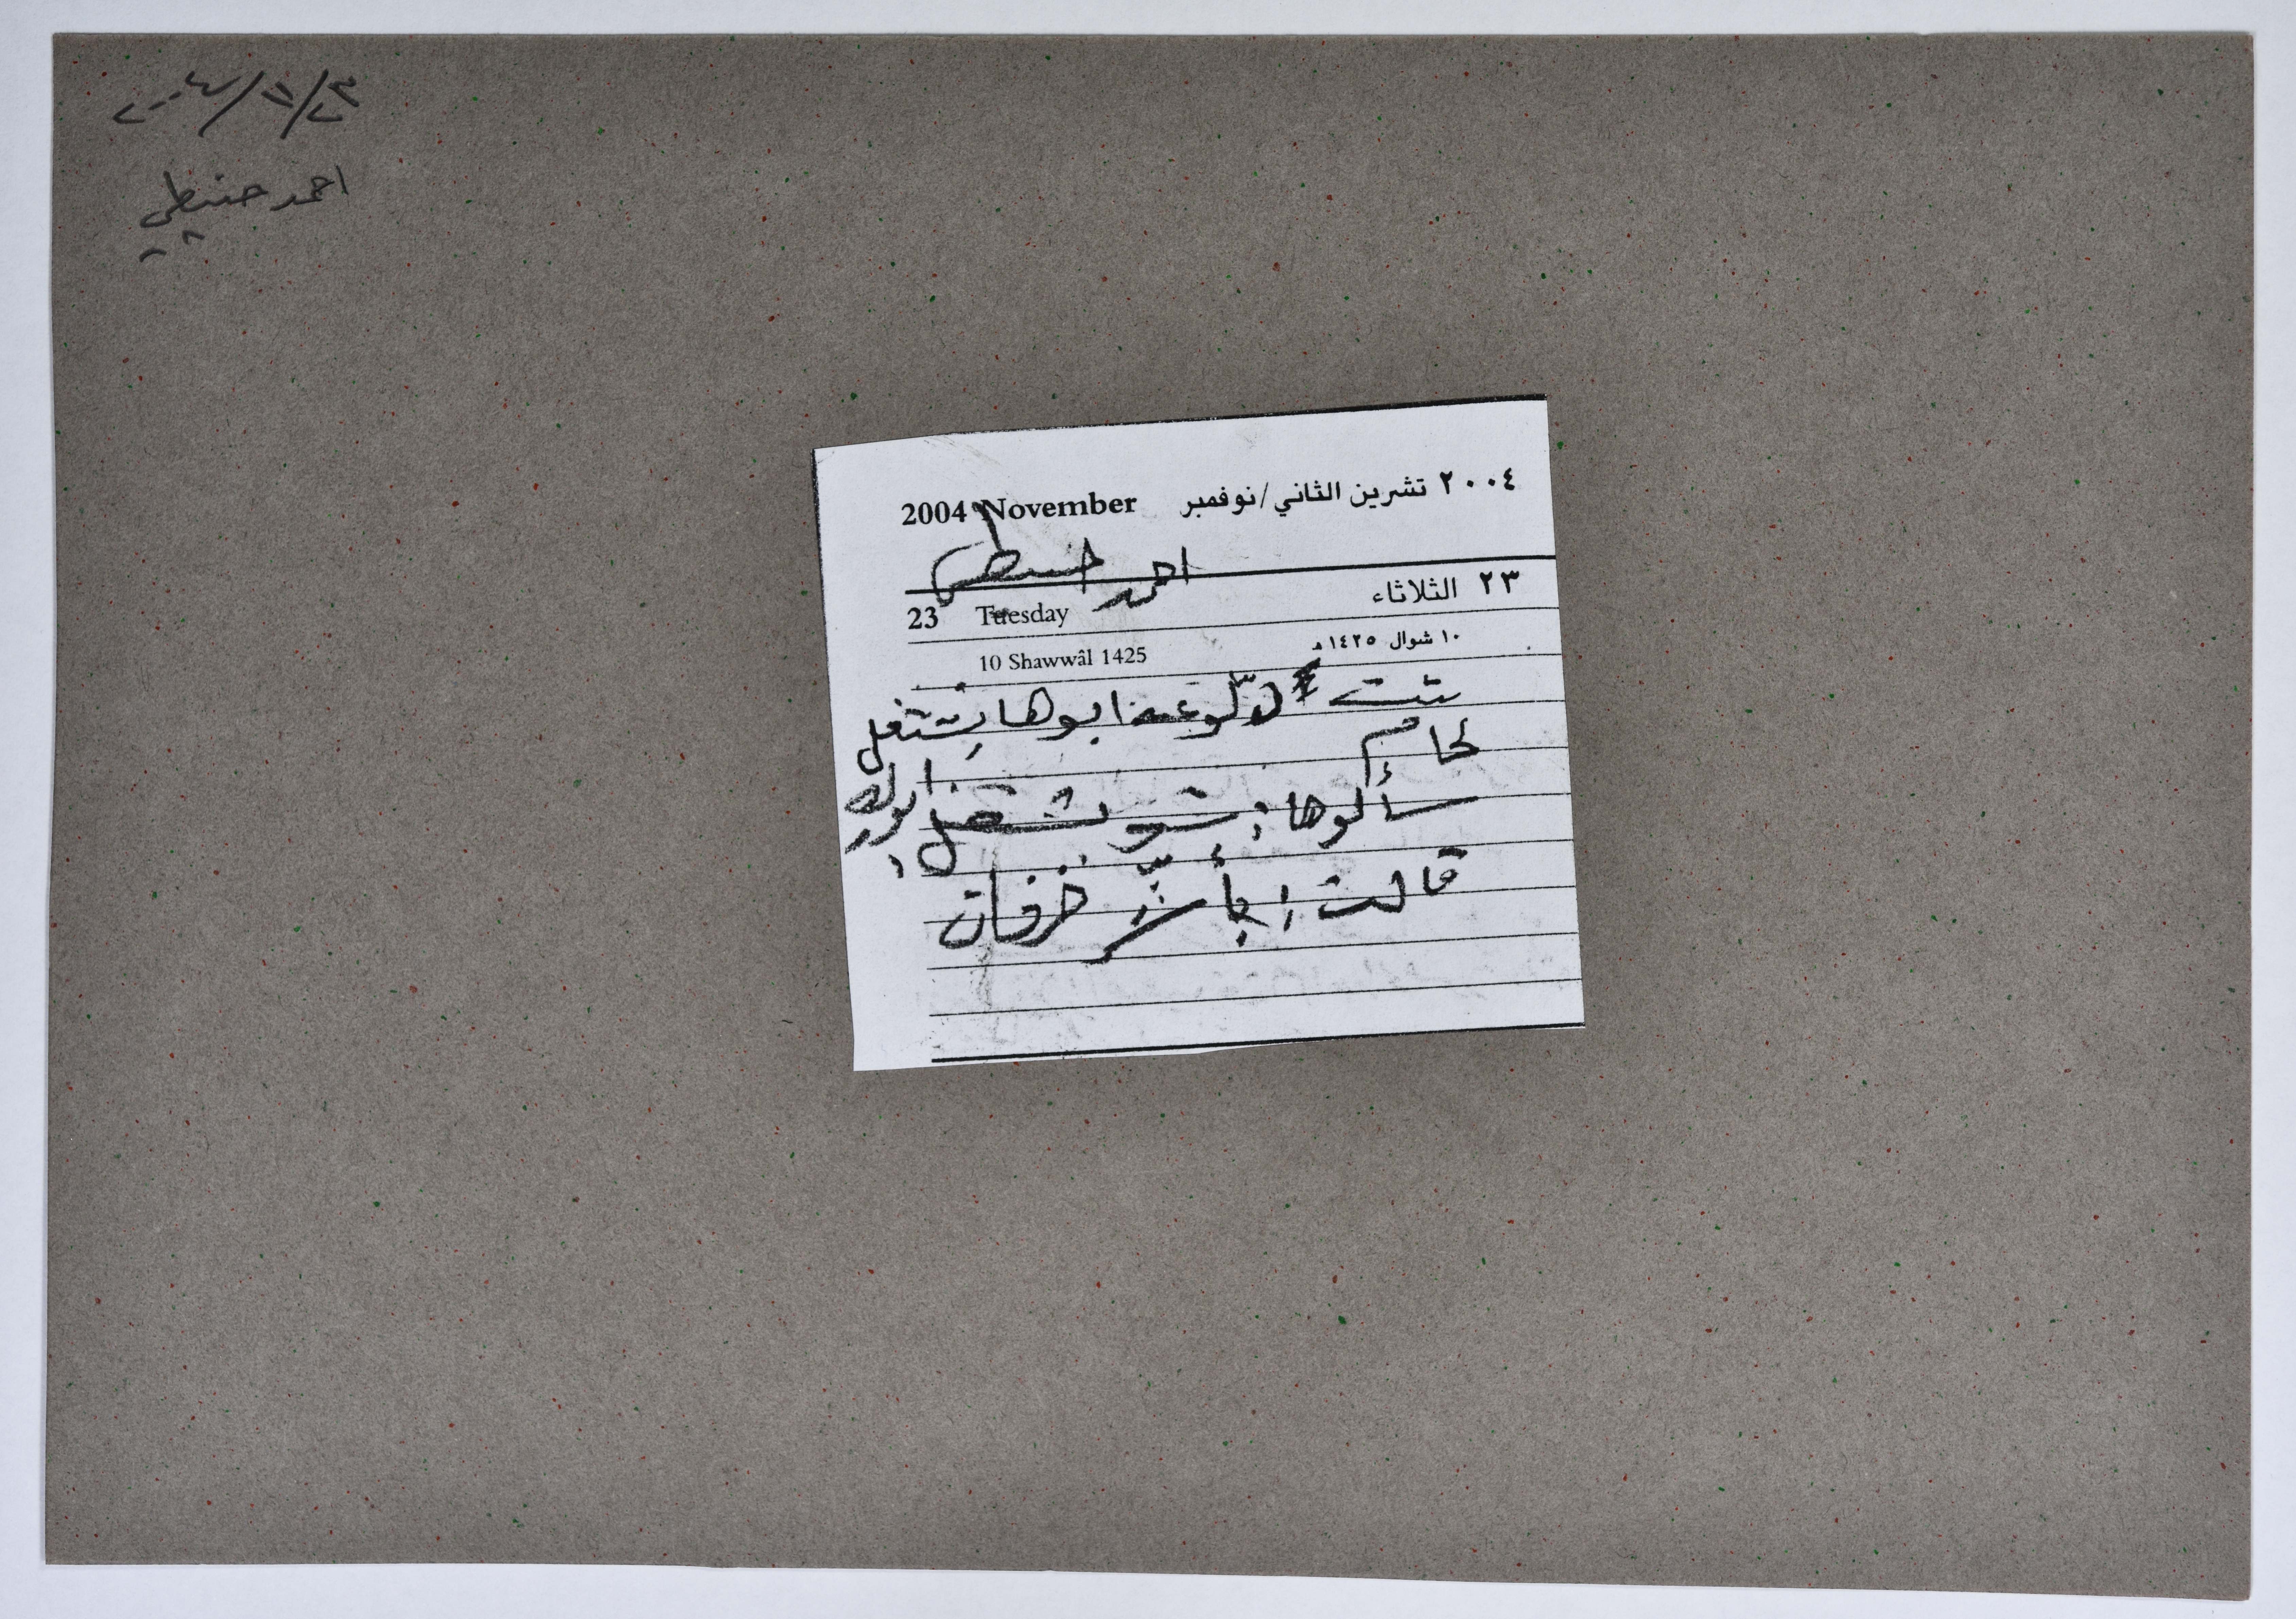 ٢٠٠٤/١١/٢٣
احمد حنيطي
2004 November ٢٠٠٤ تشرين الثاني/نوفمبر
احمد حنيطي
23 Tuesday ٢٣ الثلاثاء
10 Shawwâl 1425 ١٠ شوال ١٤٢٥هـ
بنت دلّوعه ابوها بشتغل
لحام
سألوها: شو بشتغل ابوك
قالت: بأشّر خرفان